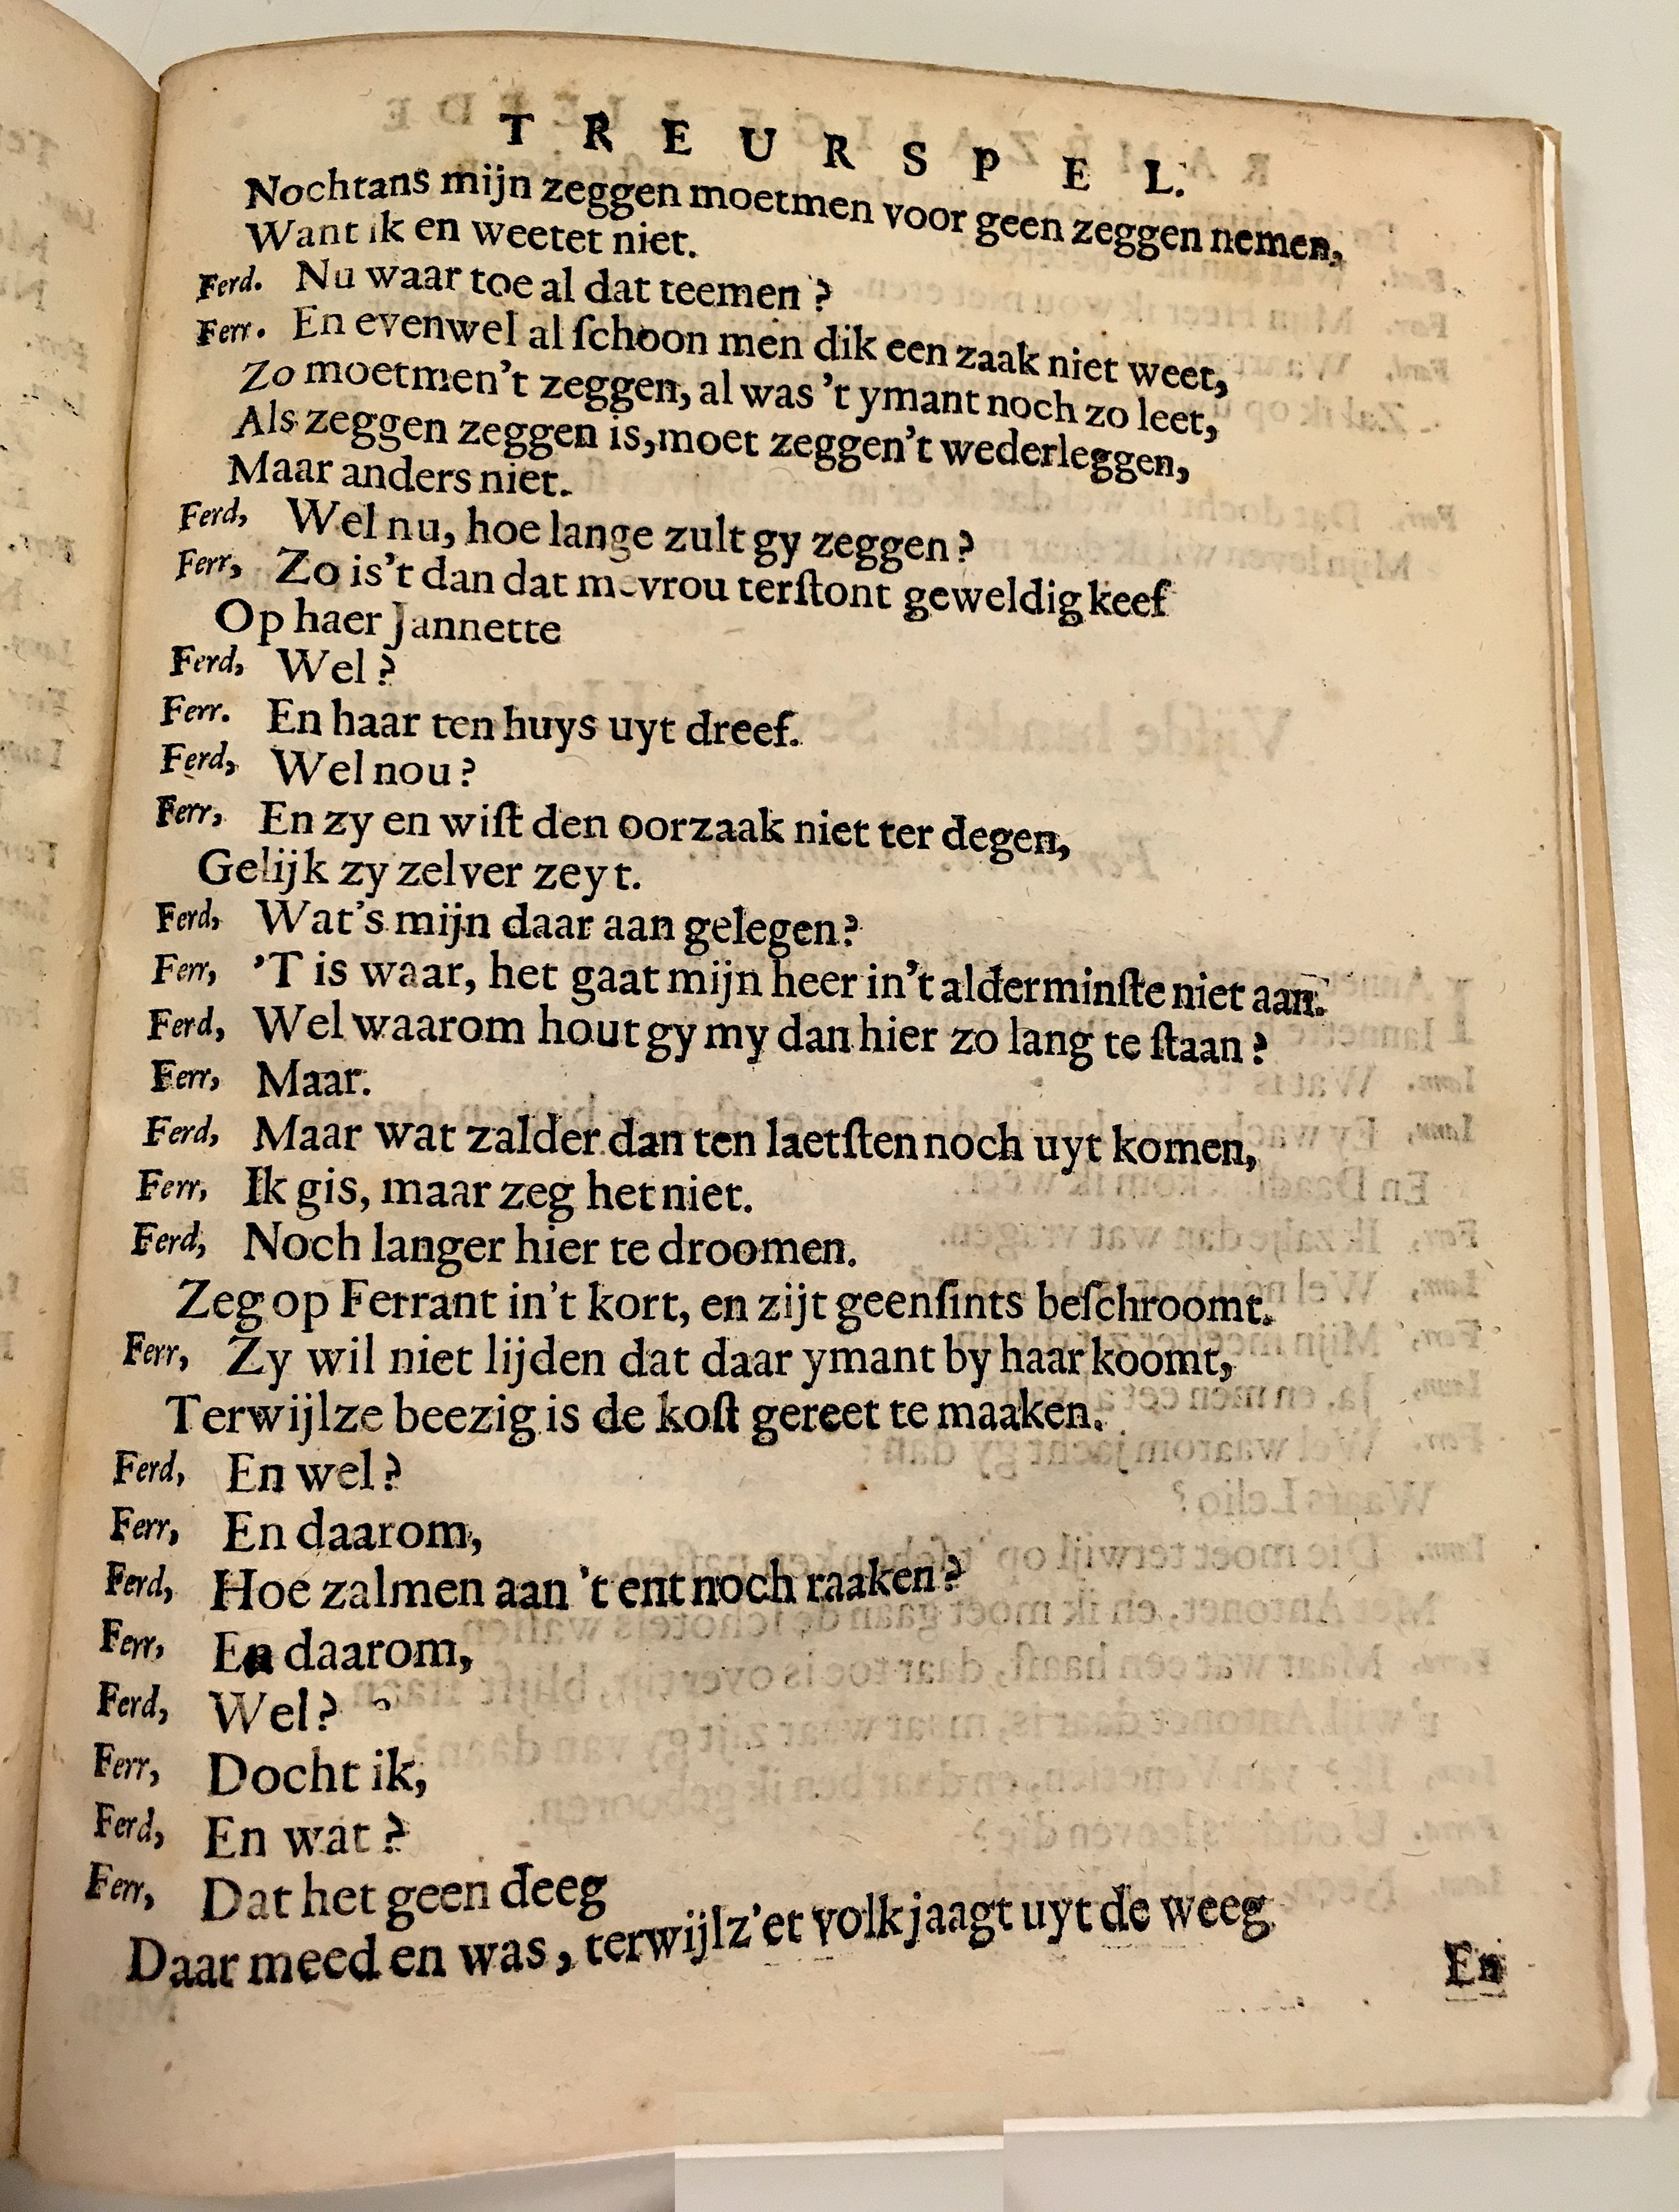 TREURSPEL.
Nochtans mijn zeggen moetmen voor geen zeggen nemen,
Want ik en weetet niet.
Ferd. Nu waar toe al dat teemen?
Ferr. En evenwel al ſchoon men dik een zaak niet weet,
Zo moetmen't zeggen, al was 't ymant noch zo leet,
Als zeggen zeggen is, moet zeggen't wederleggen,
Maar anders niet.
Ferd, Wel nu, hoe lange zult gy zeggen?
Ferr, Zo is't dan dat mevrou terſtont geweldig keef
Op haer Jannette
Ferd, Wel?
Ferr. En haar ten huys uyt dreef.
Ferd, Wel nou?
Ferr, En zy en wiſt den oorzaak niet ter degen,
Gelijk zy zelver zeyt.
Ferd, Wat's mijn daar aan gelegen?
Ferr, 'T is waar, het gaat mijn heer in't alderminſte niet aan.
Ferd, Wel waarom hout gy my dan hier zo lang te ſtaan?
Ferr, Maar.
Ferd, Maar wat zalder dan ten laetſten noch uyt komen,
Ferr, Ik gis, maar zeg het niet.
Ferd, Noch langer hier te droomen.
Zeg op Ferrant in't kort, en zijt geenſints beſchroomt.
Ferr, Zy wil niet lijden dat daar ymant by haar koomt,
Terwijlze beezig is de koſt gereet te maaken.
Ferd, En wel?
Ferr, En daarom,
Ferd, Hoe zalmen aan 't ent noch raaken?
Ferr, En daarom,
Ferd, Wel?
Ferr, Docht ik,
Ferd, En wat?
Ferr, Dat het geen deeg
Daar meed en was, terwijlz'et volk jaagt uyt de weeg
En